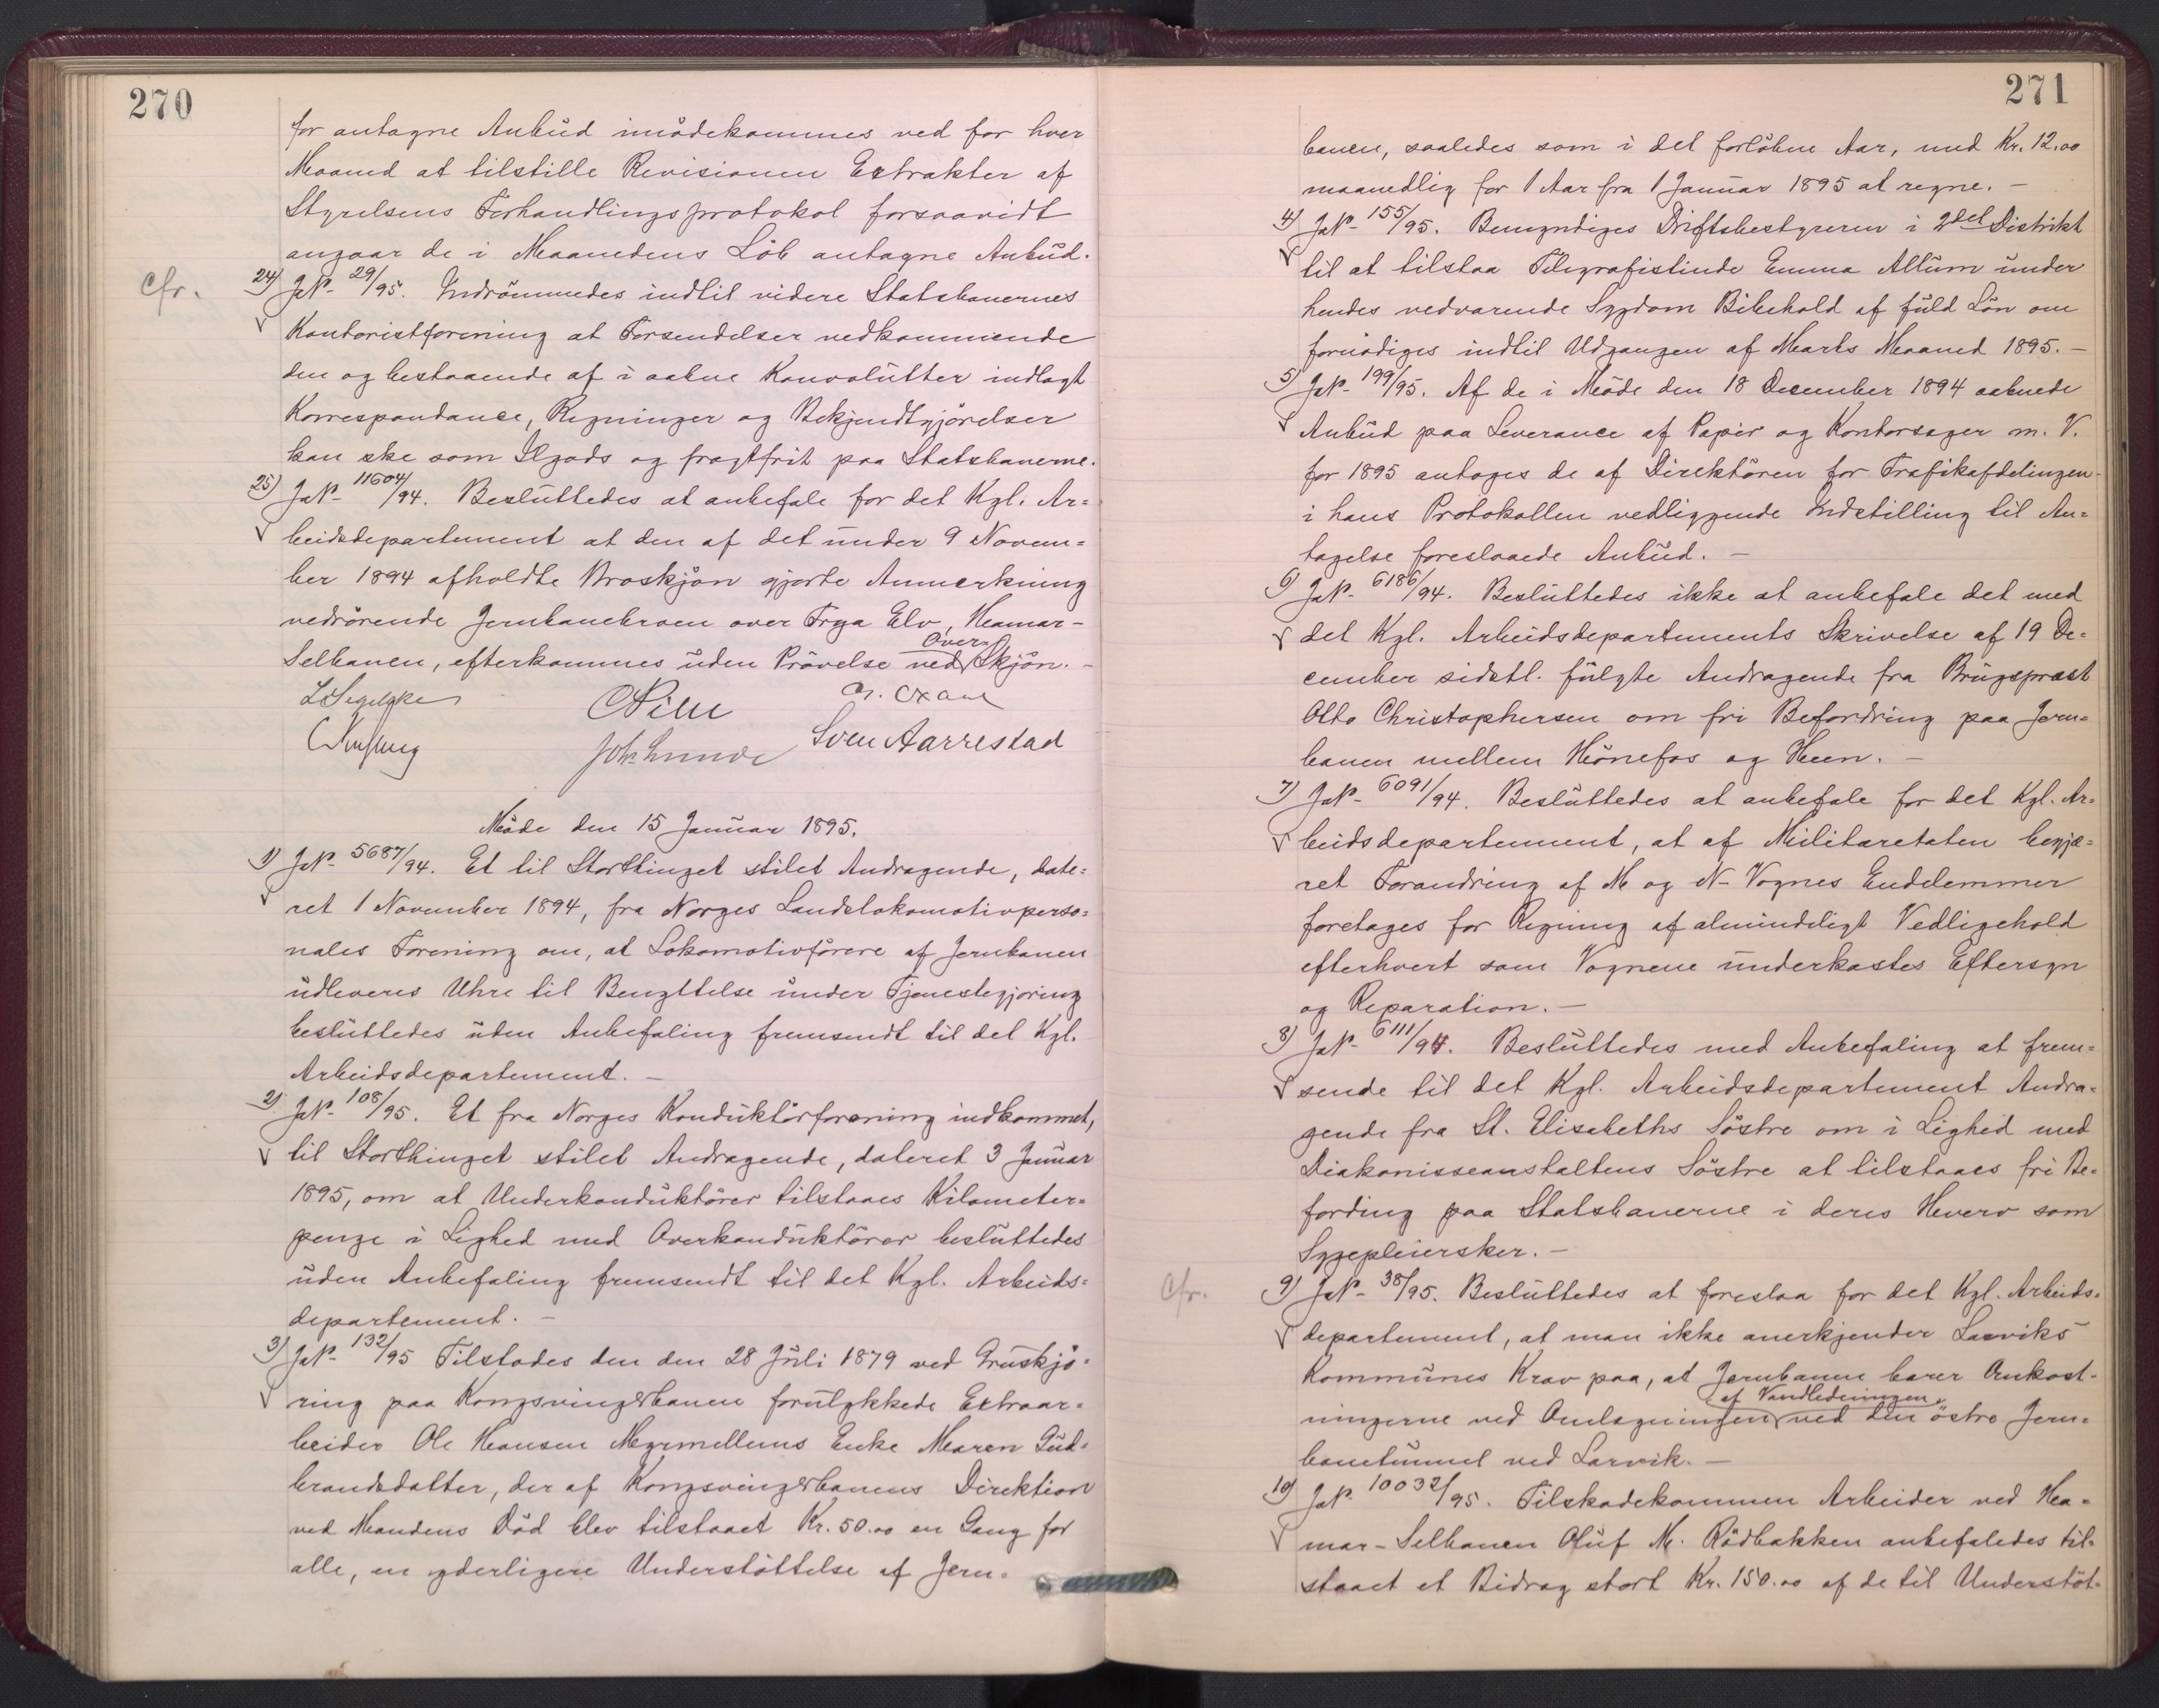 270
for antagne Anbud imødekommes ved for hver
Maaned at tilstille Revisionen Extrakter af
Styrelsens Forhandlingsprotokol forsaavidt
angaar de i Maanedens Løb antagne Anbud.
cfr. 24) JN- 29/95. Indrømmedes indtil videre Statsbanernes
Kontoristforening at Forsendelser vedkommende
den og bestaaende af i aabne Konvolutter indlagt
Korrespondance, Regninger og Bekjendtgjørelser
kan ske som Ilgods og fragtfrit paa Statsbanerne.
25) JN- 11604/94. Besluttedes at anbefale for det Kgl. Ar=
beidsdepartement at den af det under 9 Novem=
ber 1894 afholdte Broskjøn gjorte Anmerkning
vedrørende Jernbanebroen over Frya Elv, Hamar-
Selbanen, efterkommes uden Prøvelse ved Over Skjøn. -
L Segelcke
C Pihl
Joh. Lunde
Sven Aarrestad
Møde den 15 Januar 1895.
1) JN- 5687/94. Et til Storthinget stilet Andragende, date=
ret 1 November 1894, fra Norges Landslokomotivperso=
nales Forening om, at Lokomotivførere af Jernbanen
udleveres Uhre til Benyttelse under Tjenestegjøring
besluttedes uden Anbefaling fremsendt til det Kgl.
Arbeidsdepartement. -
2) JN- 108/95. Et fra Norges Konduktørforening indkommet,
til Storthinget stilet Andragende, dateret 3 Januar
1895, om at Underkonduktører tilstaaes Kilometer=
penge i Lighed med Overkonduktører besluttedes
uden Anbefaling fremsendt til det Kgl. Arbeids=
departement. -
3) JN- 132/95 Tilstodes den den 28 Juli 1879 ved Gruskjø=
ring paa Kongsvingerbanen forulykkede Extraar=
beider Ole Hansen Myrmellems Enke Maren Gud=
brandsdatter, der af Kongsvingerbanens Direktion
ved Mandens Død blev tilstaaet Kr. 50.00 en Gang for
alle, en yderligere Understøttelse af Jern=
271
banen, saaledes som i det forløbne Aar, med Kr. 12.00
maanedlig for 1 Aar fra 1 Januar 1895 at regne. -
4) JN- 155/95. Bemyndiges Driftsbestyreren i 2det Distrikt
til at tilstaa Telegrafistinde Emma Allum under
hendes vedvarende Sygdom Bibehold af fuld Løn om
fornødiges indtil Udgangen af Marts Maaned 1895. -
5) JN- 199/95. Af de i Møde den 18 December 1894 aabnede
Anbud paa Leverance af Papir og Kontorsager m. V.
for 1895 antoges de af Direktøren for Trafikafdelingen
i hans Protokollen vedliggende Indstilling til An=
tagelse foreslaaede Anbud. -
6) JN- 6186/94. Besluttedes ikke at anbefale det med
det Kgl. Arbeidsdepartements Skrivelse af 19 De=
cember sidstl. fulgte Andragende fra Brugsprest
Otto Christophersen om fri Befordring paa Jern=
banen mellem Hønefos og Heen. -
7) JN- 6091/94. Besluttedes at anbefale for det Kgl. Ar=
beidsdepartement, at af Militæretaten begjæ=
ret Forandring af M og N- Vognes Endelemmer
foretages for Regning af almindeligt Vedligehold
efterhvert som Vognene underkastes Eftersyn
og Reparation. -
8) JN- 6111/94. Besluttedes med Anbefaling at frem=
sende til det Kgl. Arbeidsdepartement Andra=
gende fra St. Elisabeths Søstre om i Lighed med
Diakonisseanstaltens Søstre at tilstaaes fri Be=
fording paa Statsbanerne i deres Hverv som
Sygepleiersker. -
cfr. 9) JN- 38/95. Besluttedes at foreslaa for det Kgl. Arbeids=
departement, at man ikke anerkjender Larviks
Kommunes Krav paa, at Jernbanen bærer Omkost-
ningerne ved Omlægningen af Vandledningen ved den østre Jern=
banetunnel ved Larvik. -
10) JN. 10032/95. Tilskadekommen Arbeider ved Ha=
mar-Selbanen Oluf M. Rødbakken anbefaledes til=
staaet et Bidrag stort Kr. 150.00 af de til Understøt-